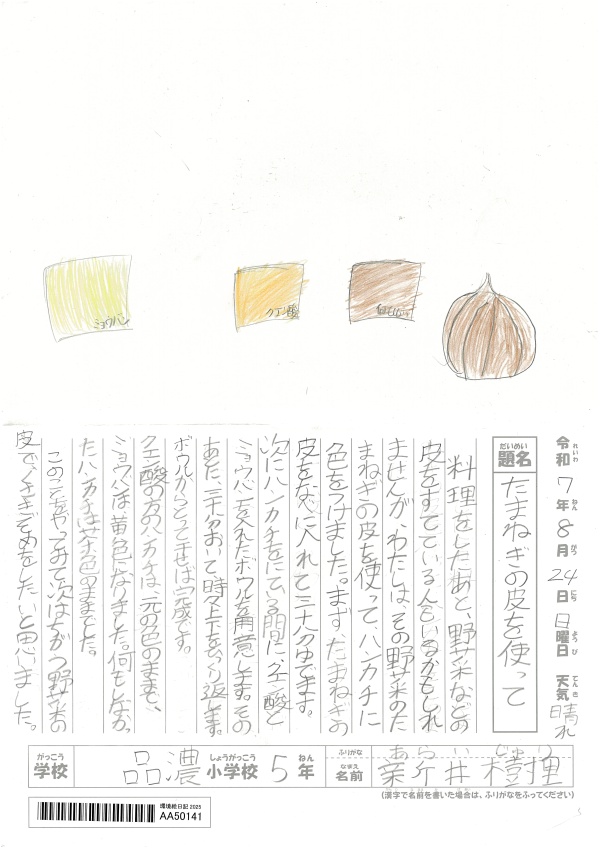 ミョウバン
クエン酸
令和7年8月24日日曜日 天気晴れ
れいわ ねん がつ にち ようび てんき
だいめい
題名
たまねぎの皮を使って
料理をしたあと、野菜などの
皮をすてている人もいるかもしれ
ませんが、わたしは、その野菜のた
まねぎの皮を使って、ハンカチに
色をつけました。まず、たまねぎの
皮をなべに入れて三十分ゆでます。
次にハンカチをにている間に、クエン酸と
ミョウバンを入れたボウルを用意します。その
あた、三十分おいて時々上下をひっくり返します。
ボウルからとってほせば完成です。
クエン酸の方のハンカチは、元の色のままで、
ミョウバンは黄色になりました。何もしなかっ
たハンカチは茶色のままでした。
このことをやってみて次はちがう野菜の
皮で、くさぎぞめをしたいと思いました。
がっこう
学校
品濃
しょうがっこう
小学校
5
ねん
年
ふりがな
あらい じゅり
なまえ
名前
井樹理
(漢字で名前を書いた場合は、ふりがなをふってください)
環境絵日記 2025
AA50141